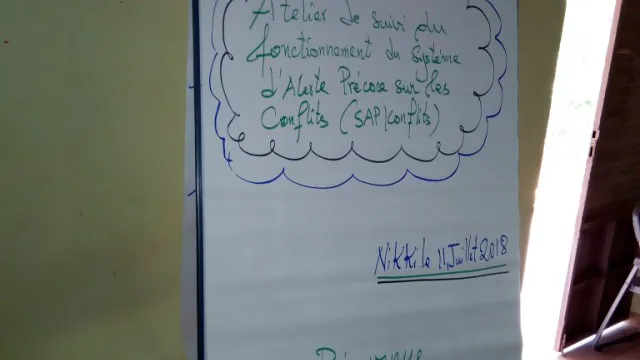 Atelier de suivi du
fonctionnement du système
d'Alerte Précoce sur les
Conflits (SAP/conflits)
Nikki le 11 Juillet 2018